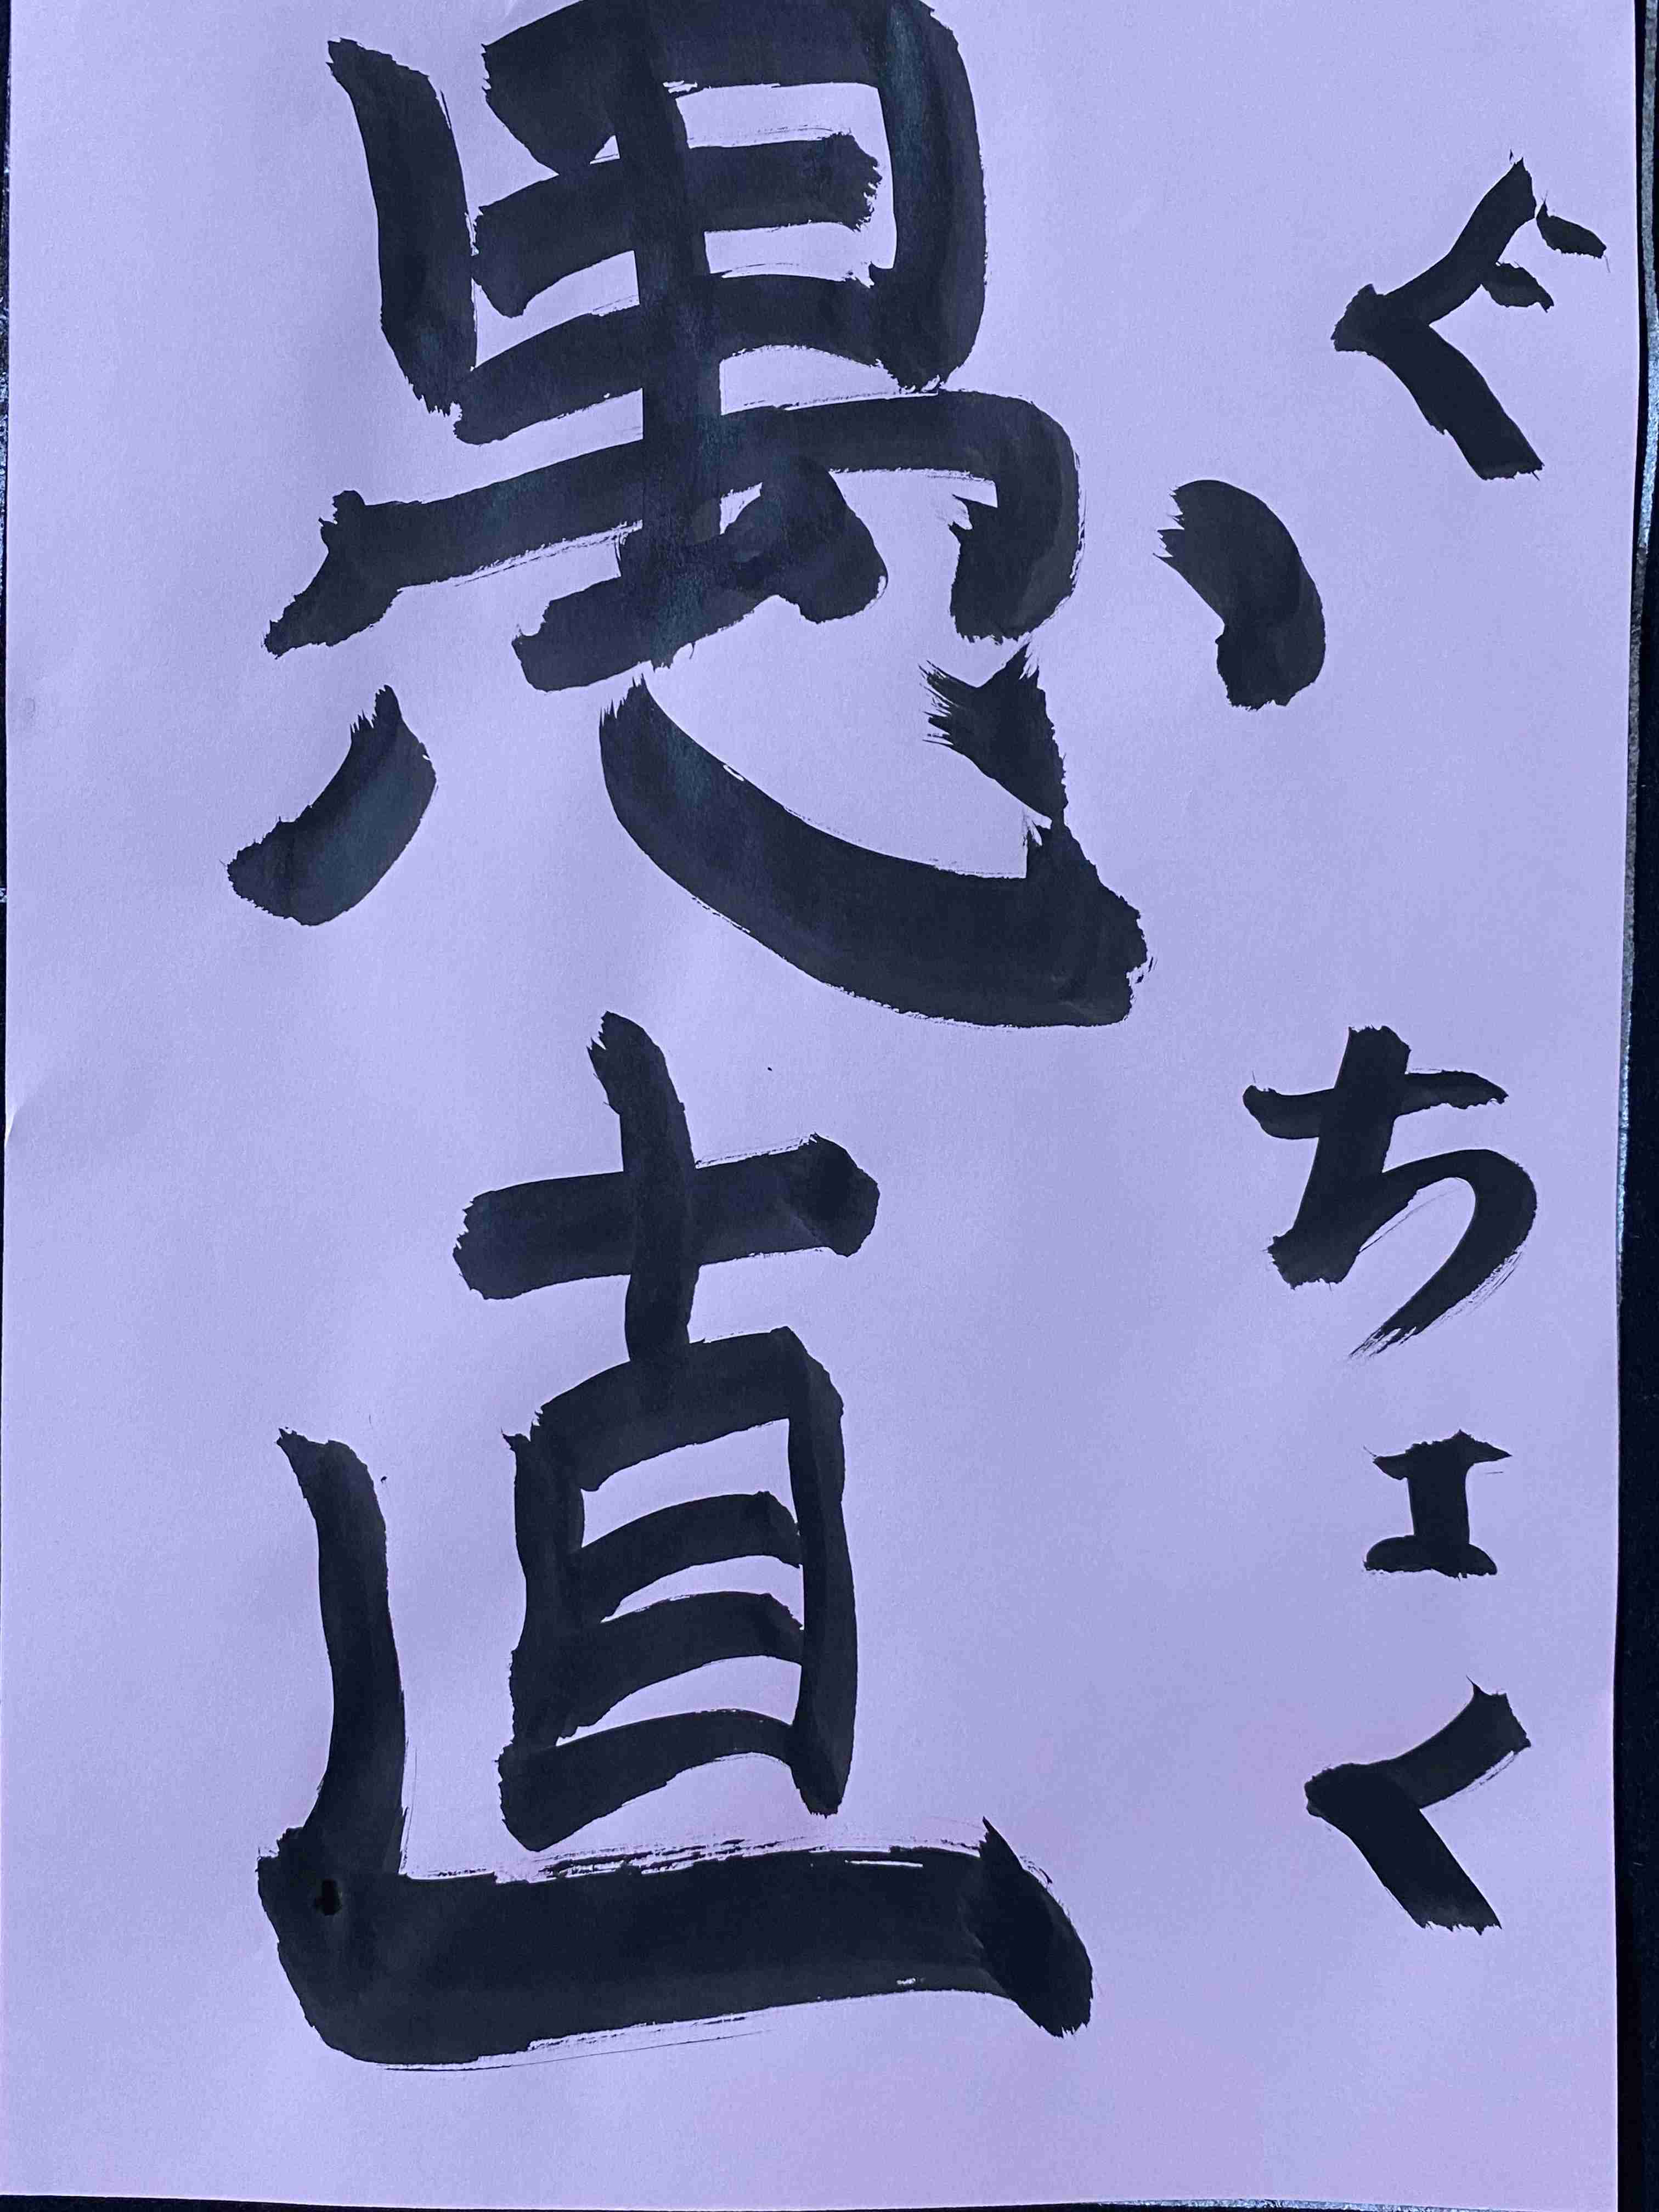 ぐちょく
愚直